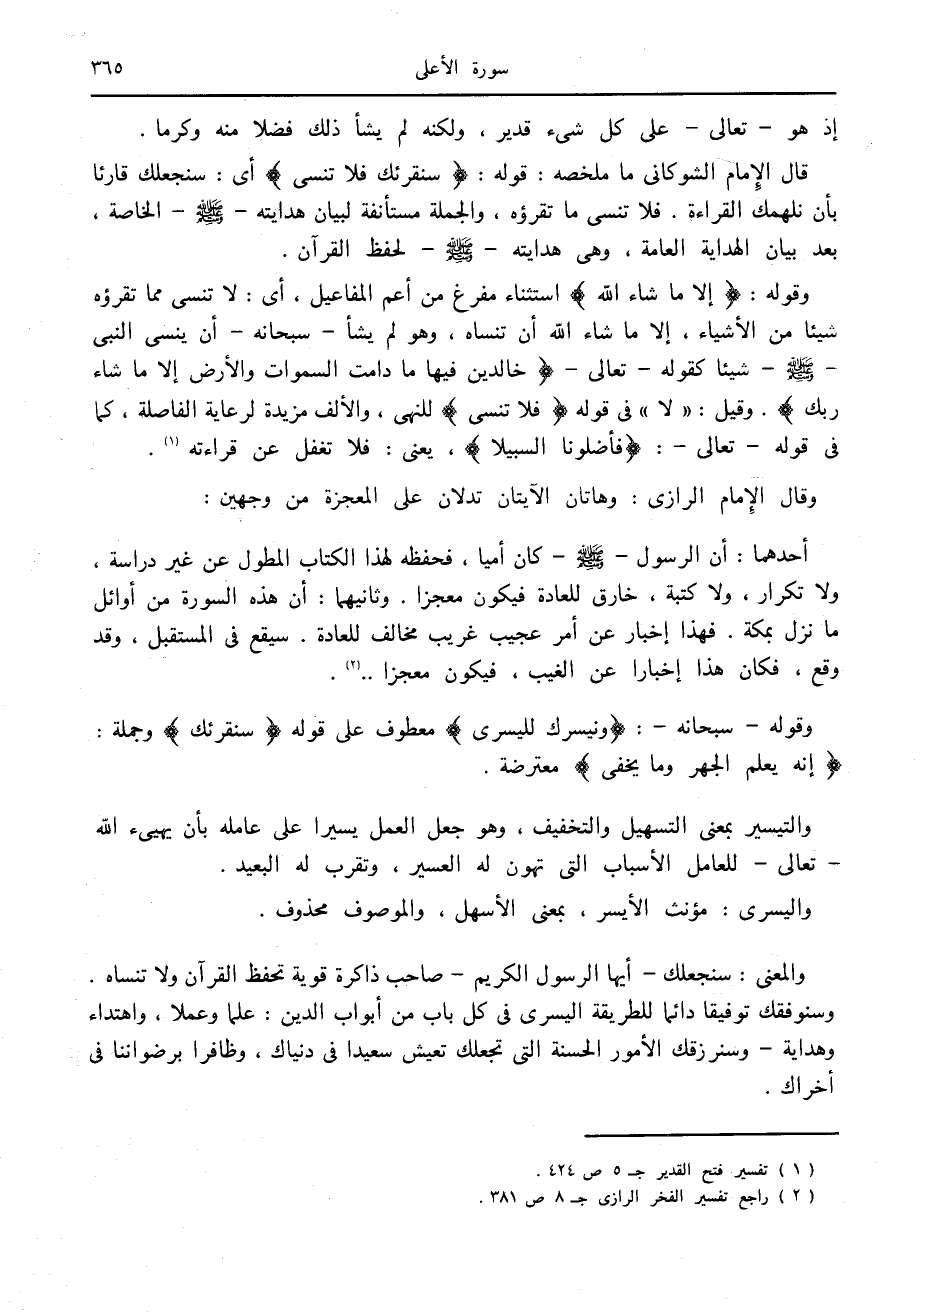 سورة الأعلى ٣٦٥
إذ هو – تعالى – على كل شىء قدير ، ولكنه لم يشأ ذلك فضلا منه وكرما .
قال الإمام الشوكانى ما ملخصه : قوله : ﴿ سنقرئك فلا تنسى ﴾ أى : سنجعلك قارئا
بأن نلهمك القراءة . فلا تنسى ما تقرؤه ، والجملة مستأنفة لبيان هدايته – ﷺ – الخاصة ،
بعد بيان الهداية العامة ، وهى هدايته – ﷺ – لحفظ القرآن .
وقوله : ﴿ إلا ما شاء الله ﴾ استثناء مفرغ من أعم المفاعيل ، أى : لا تنسى مما تقرؤه
شيئا من الأشياء ، إلا ما شاء الله أن تنساه ، وهو لم يشأ – سبحانه – أن ينسى النبى
– ﷺ – شيئا كقوله – تعالى – ﴿ خالدين فيها ما دامت السموات والأرض إلا ما شاء
ربك ﴾ . وقيل : « لا » فى قوله ﴿ فلا تنسى ﴾ للنهى ، والألف مزيدة لرعاية الفاصلة ، كما
فى قوله – تعالى – : ﴿فأضلونا السبيلا ﴾ ، يعنى : فلا تغفل عن قراءته (١) .
وقال الإمام الرازى : وهاتان الآيتان تدلان على المعجزة من وجهين :
أحدهما : أن الرسول – ﷺ – كان أميا ، فحفظه لهذا الكتاب المطول عن غير دراسة ،
ولا تكرار ، ولا كتبة ، خارق للعادة فيكون معجزا . وثانيهما : أن هذه السورة من أوائل
ما نزل بمكة . فهذا إخبار عن أمر عجيب غريب مخالف للعادة . سيقع فى المستقبل ، وقد
وقع ، فكان هذا إخبارا عن الغيب ، فيكون معجزا ..(٢) .
وقوله – سبحانه – : ﴿ونيسرك لليسرى ﴾ معطوف على قوله ﴿ سنقرئك ﴾ وجملة :
﴿ إنه يعلم الجهر وما يخفى ﴾ معترضة .
والتيسير بمعنى التسهيل والتخفيف ، وهو جعل العمل يسيرا على عامله بأن يهيىء الله
– تعالى – للعامل الأسباب التى تهون له العسير ، وتقرب له البعيد .
واليسرى : مؤنث الأيسر ، بمعنى الأسهل ، والموصوف محذوف .
والمعنى : سنجعلك – أيها الرسول الكريم – صاحب ذاكرة قوية تحفظ القرآن ولا تنساه .
وسنوفقك توفيقا دائما للطريقة اليسرى فى كل باب من أبواب الدين : علما وعملا ، واهتداء
وهداية – وسنرزقك الأمور الحسنة التى تجعلك تعيش سعيدا فى دنياك ، وظافرا برضواننا فى
أخراك .
( ١ ) تفسير فتح القدير جـ ٥ ص ٤٢٤ .
( ٢ ) راجع تفسير الفخر الرازى جـ ٨ ص ٣٨١ .